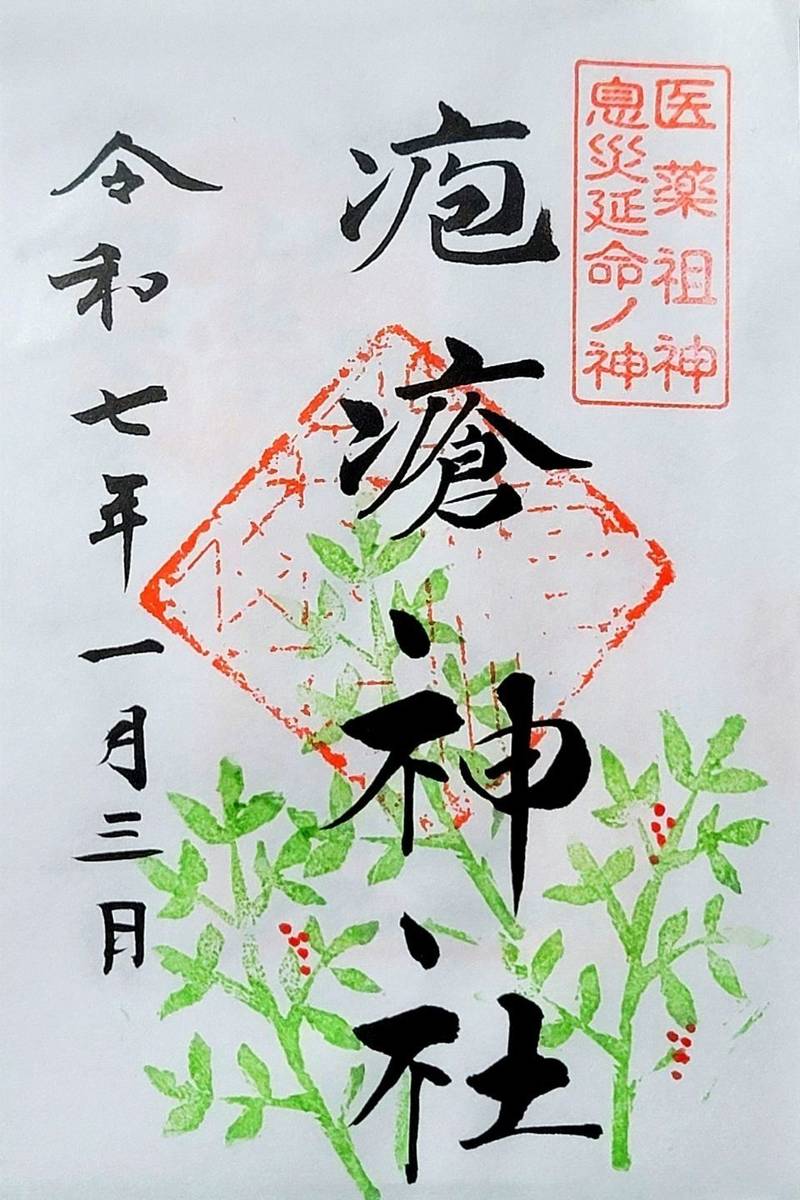 医薬祖神
息災延命ノ神
疱瘡神社
令和七年一月三日